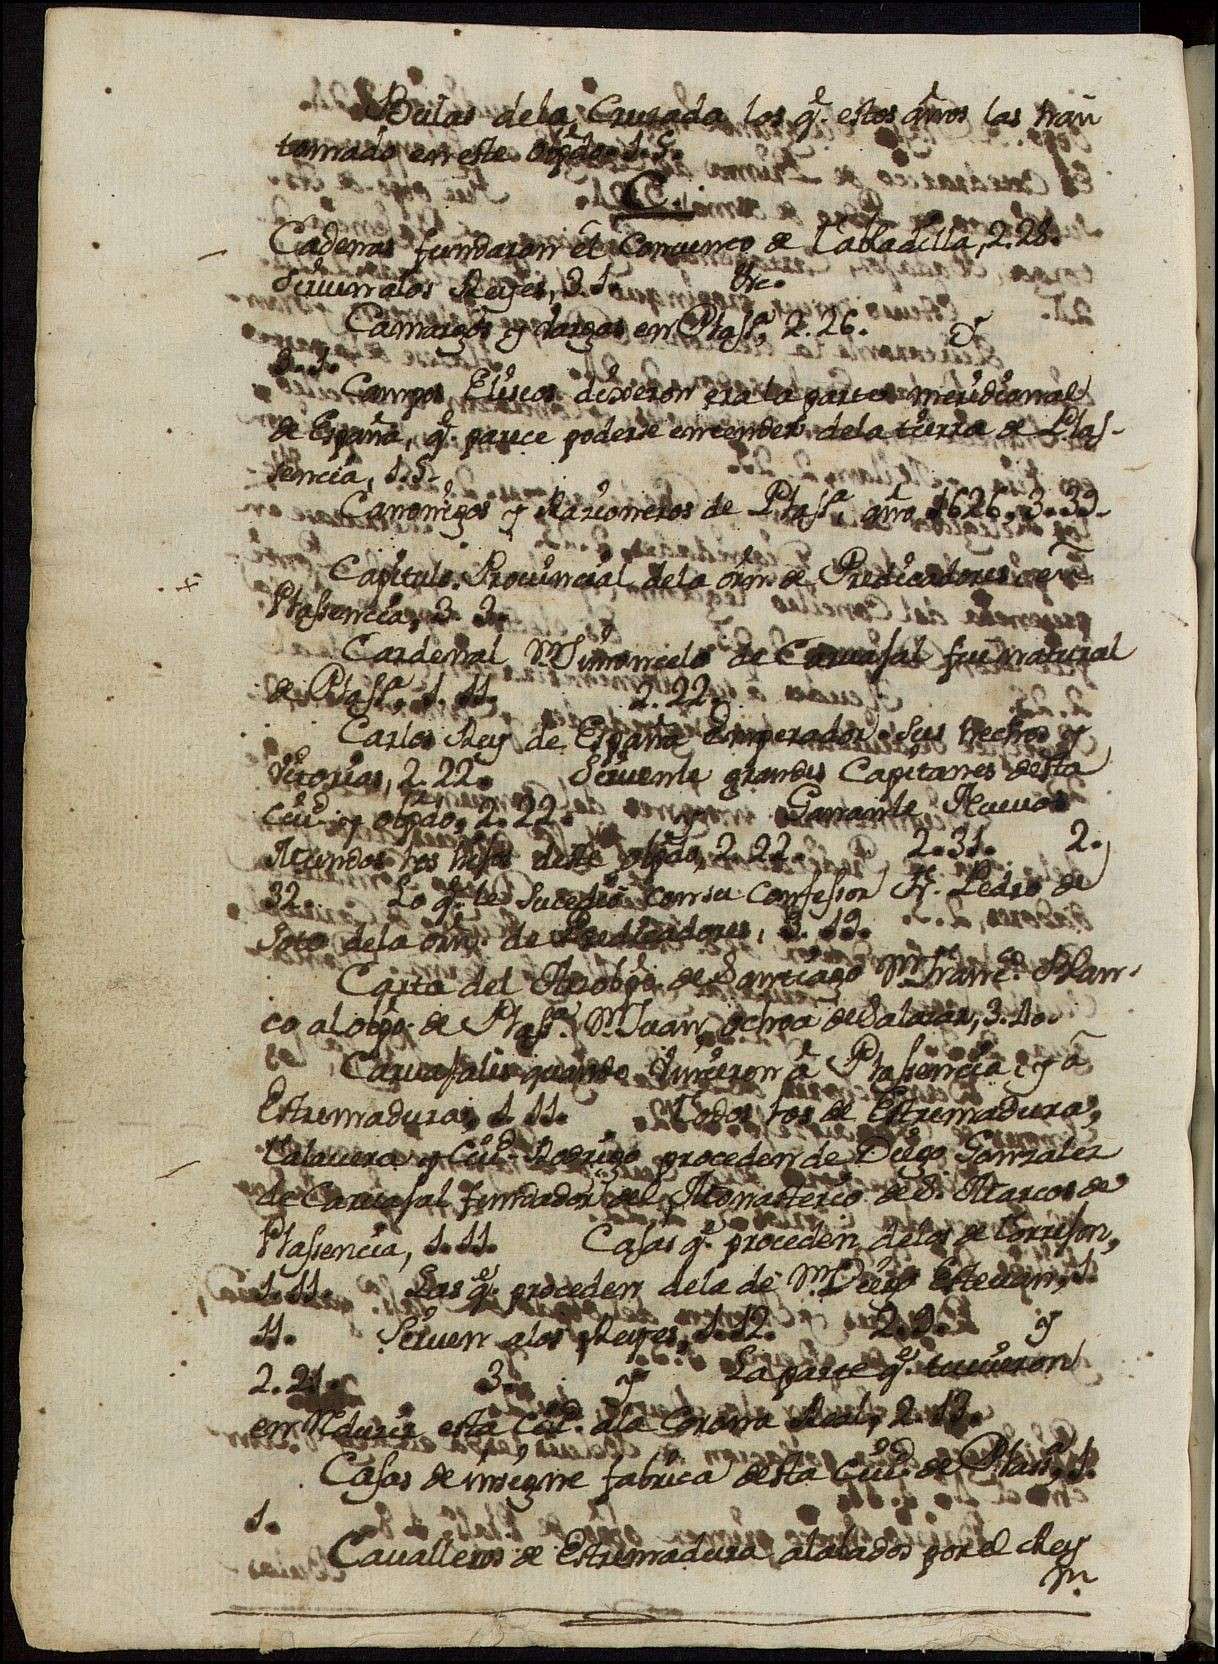 Bulas dela Cruzada los q.e estos años las han
tomado en este obp.do 1.5.
C.
Cadenas fundaron el Conuento de Tabladilla, 2.28.
Siruen alos Reyes, 3 1. &c.
Camargos y Vargas en Plass.a 2.26. y
3.1.
Campos Eliseos dixeron era la parte meridional
de España, q.e parece poderse entender dela tierra de Plas-
sencia, 1.5.
Canonigos y Racioneros de Plass.a año 1626. 3.33.
Capitulo Prouincial dela orn de Predicadores en
Plassencia, 3. 3.
Cardenal D. Simoncelo de Caruajal fue natural
de Plass.a 1.11. 2.22.
Carlos Rey de España Emperador. Sus hechos y
Vitorias, 2.22. Siruenle grandes Capitanes desta
Ciud. y obpdo, 2.22. y Gananle Nueuos
Mundos los hijos deste obpdo, 2.22. 2.31. 2.
32. Lo q.e le Sucedio con su confessor Fr. Pedro de
Soto dela orn. de Predicadores, 3.13.
Carta del Arzobpo. de Santiago D. Franc.co Blan-
co al obpo. de Plass.a D. Juan ochoa de Salazar, 3.10.
Caruajales quando Vinieron â Plassencia, y â
Estremadura, 1.11. Todos los de Estremadura,
Talauera y Ciud. Rodrigo proceden de Diego Gonzalez
de Caruajal fundador del Monasterio de S. Marcos de
Plassencia, 1.11. Casas q.e proceden delos de Torrejon,
1.11. Las q.e proceden dela de D. Diego Esteuan, 1.
11. Siruen alos Reyes, 1.12. 2.3. y
2.21. 3. y La parte q.e tuuieron
en Reducir esta Ciud. ala Corona Real, 2.13.
Casas de insigne fabrica desta Ciud. de Plass.a, 1.
1.
Caualleros de Estremadura alabados por el Rey
D.